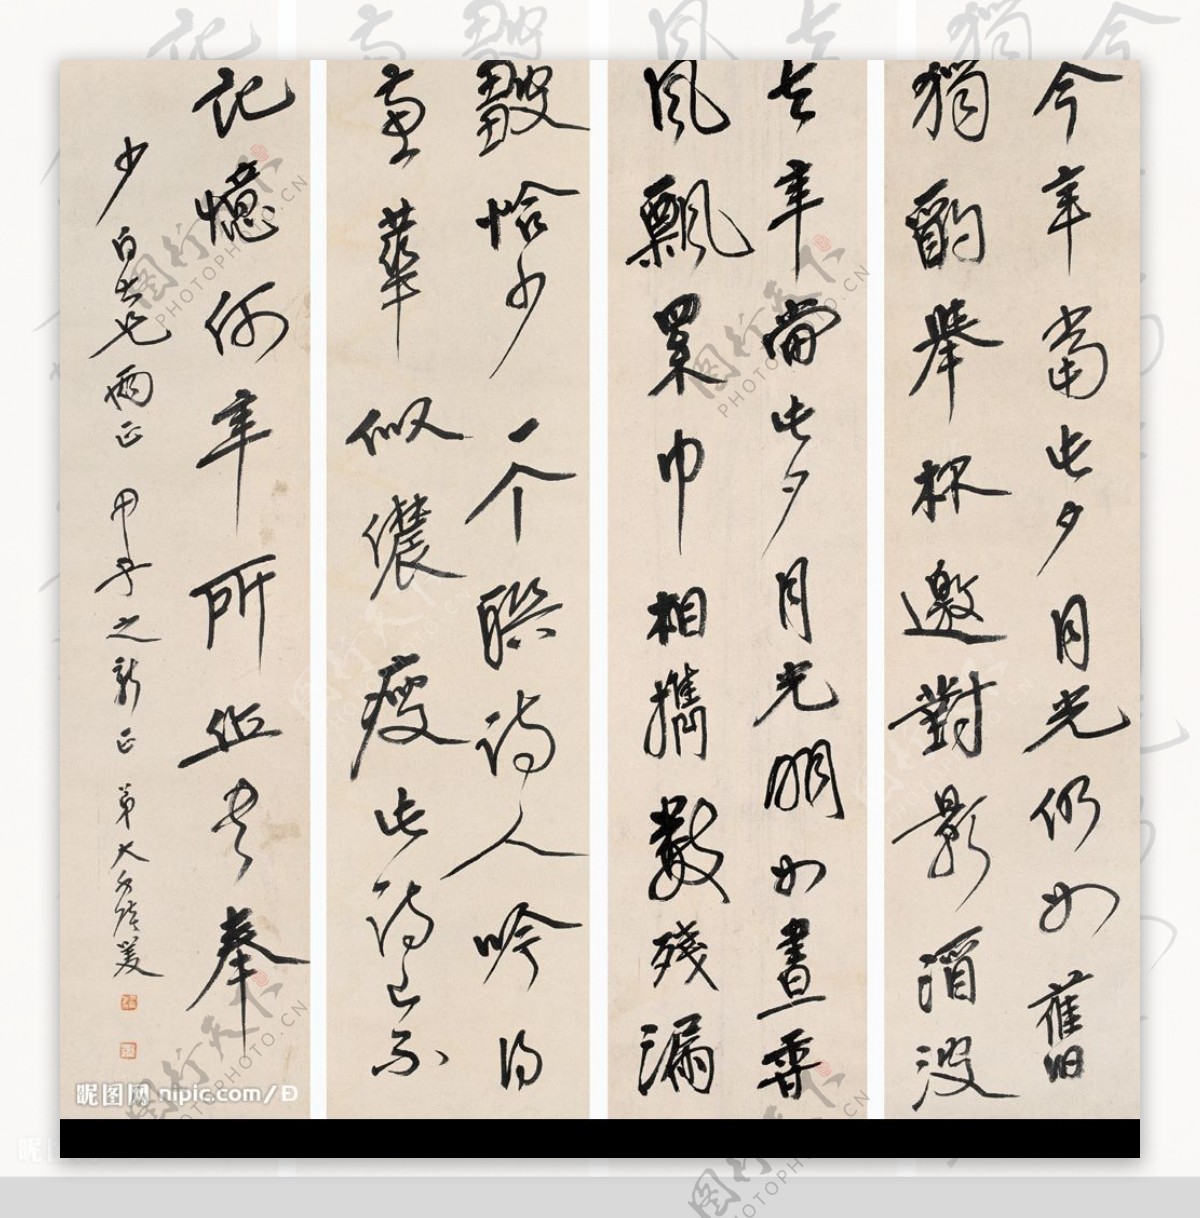 今年當此夕月光仍如舊
獨酌舉杯邀對影酒沒
去年當此夕月光明如晝香
風飄累巾相攜數殘漏
皺恰少一个聯詩人吟得
畫華似儂瘦此詩已不
記憶何年所作也書奉
少白大兄雨正 甲子之新正 弟大
昵图网 nipic.com/
图行天下 PHOTOPHOTO.CN